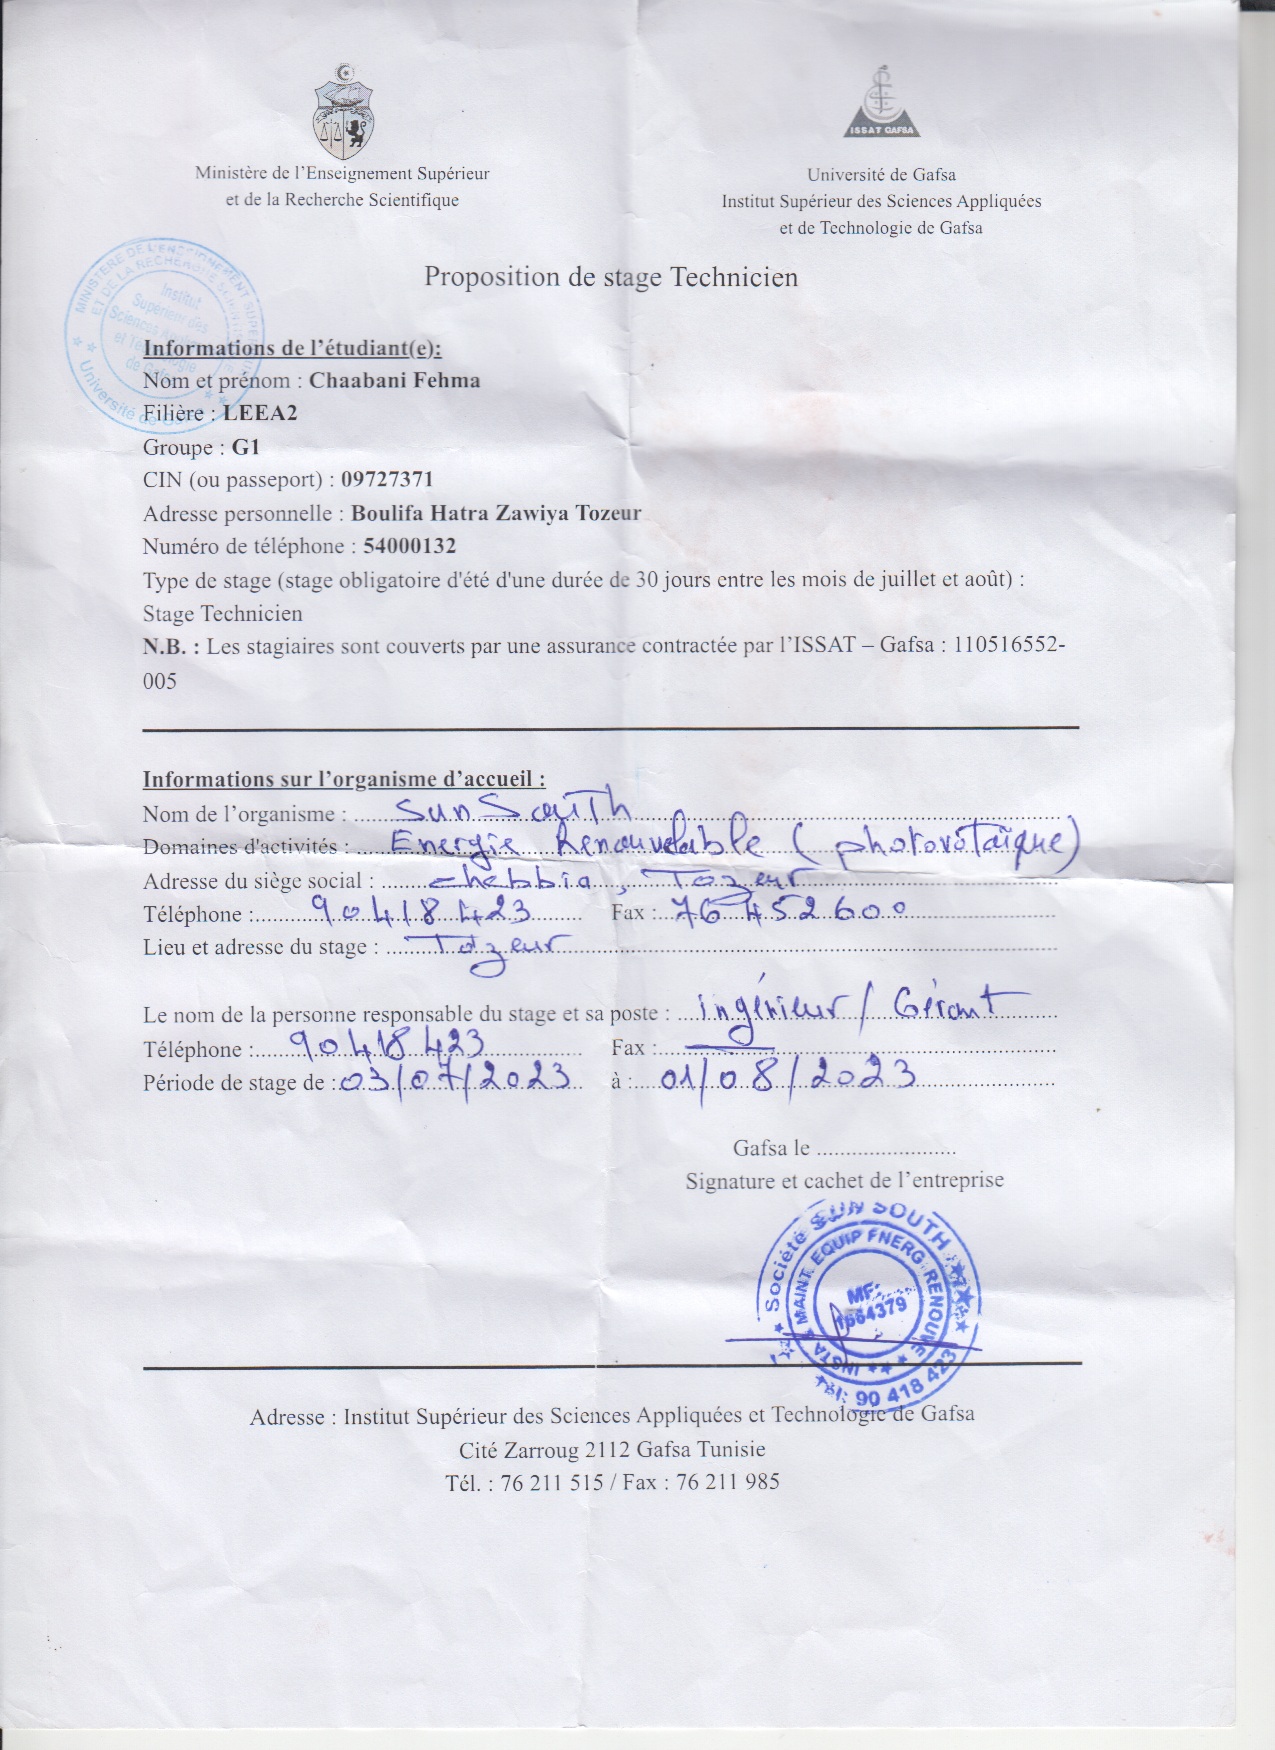 ISSAT GAFSA
Ministère de l'Enseignement Supérieur
et de la Recherche Scientifique
Université de Gafsa
Institut Supérieur des Sciences Appliquées
et de Technologie de Gafsa
MINISTERE DE L'ENSEIGNEMENT SUPERIEUR
ET DE LA RECHERCHE SCIENTIFIQUE
Institut
Supérieur des
Sciences
et Technologie
de Gafsa
Université de
Proposition de stage Technicien
Informations de l'étudiant(e):
Nom et prénom : Chaabani Fehma
Filière : LEEA2
Groupe : G1
CIN (ou passeport) : 09727371
Adresse personnelle : Boulifa Hatra Zawiya Tozeur
Numéro de téléphone : 54000132
Type de stage (stage obligatoire d'été d'une durée de 30 jours entre les mois de juillet et août) :
Stage Technicien
N.B. : Les stagiaires sont couverts par une assurance contractée par l'ISSAT – Gafsa : 110516552-
005
Informations sur l'organisme d'accueil :
Nom de l'organisme : Sun South
Domaines d'activités : Energie Renouvelable (photovotaïque)
Adresse du siège social : chebbia, Tozeur
Téléphone : 90 418 423 Fax : 76 452 600
Lieu et adresse du stage : Tozeur
Le nom de la personne responsable du stage et sa poste : ingénieur / Gérant
Téléphone : 90 418 423 Fax :
Période de stage de : 03/07/2023 à : 01/08/2023
Gafsa le ........................
Signature et cachet de l'entreprise
Société SUN SOUTH
INSTA MAINT EQUIP ENERG RENOUVE
MF:
1664379
Tél: 90 418 423
Adresse : Institut Supérieur des Sciences Appliquées et Technologie de Gafsa
Cité Zarroug 2112 Gafsa Tunisie
Tél. : 76 211 515 / Fax : 76 211 985